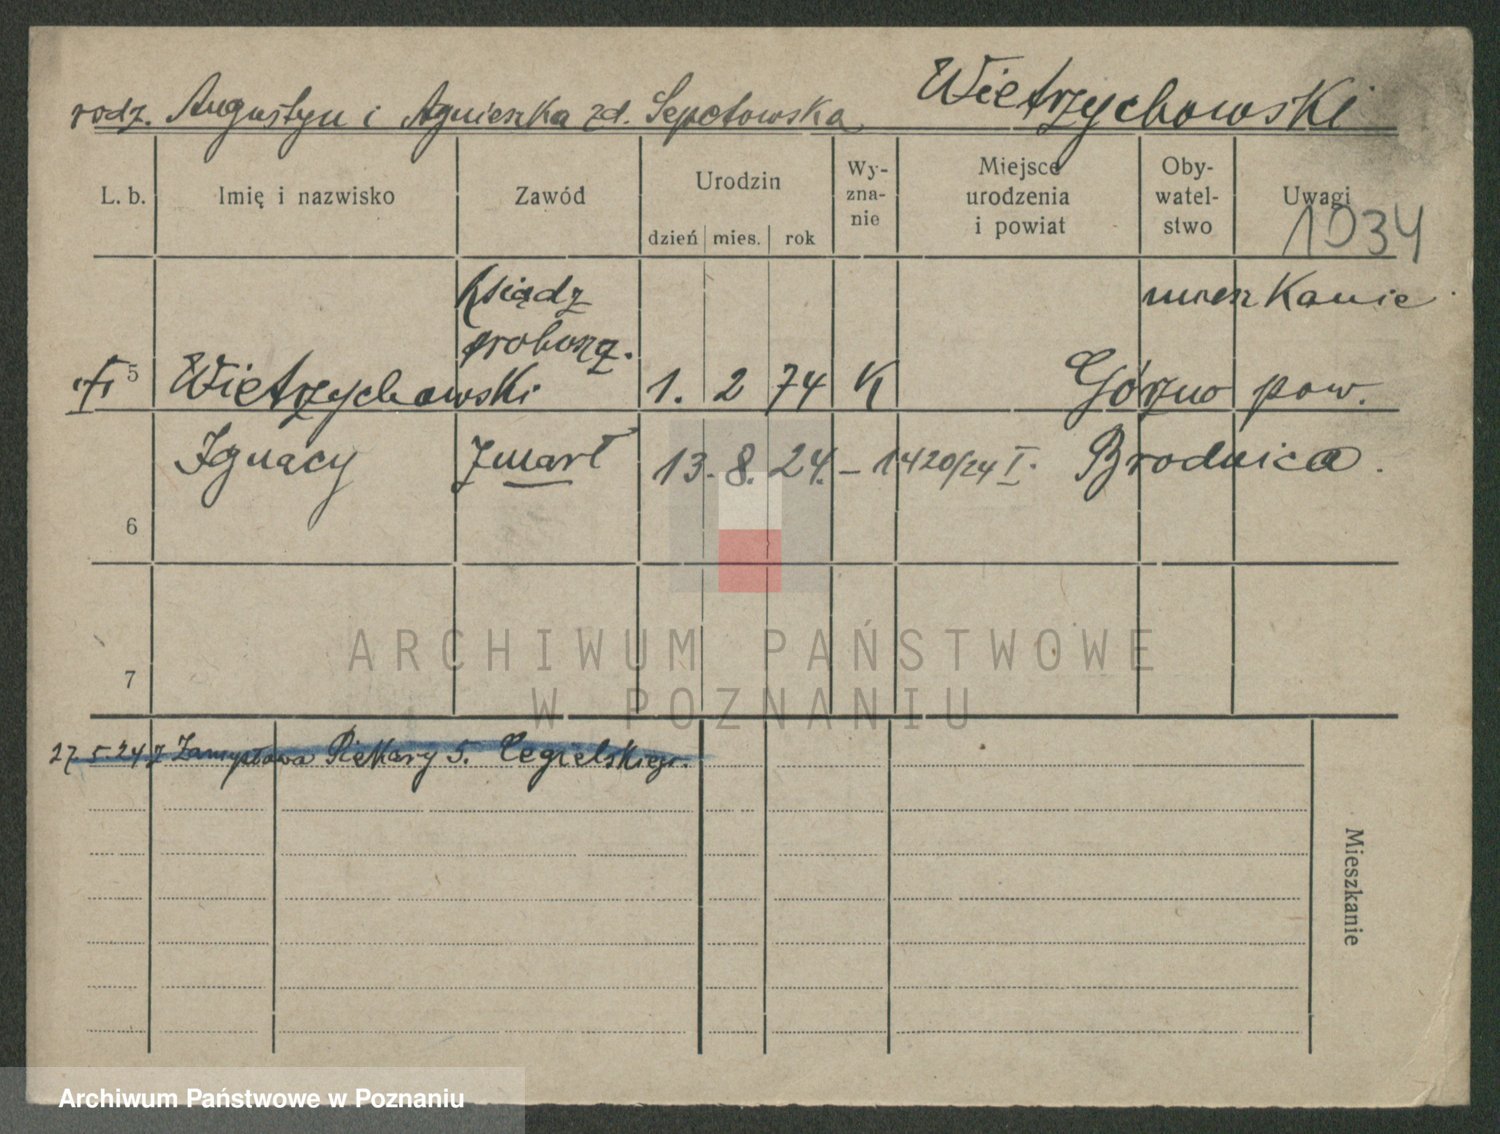 Wietrzychowski
rodz. Augustyn i Agnieszka zd. Sepotowska
L. b.
Imię i nazwisko
Zawód
Urodzin
dzień mies. rok
Wy-
zna-
nie
Miejsce
urodzenia
i powiat
Oby-
watel-
stwo
Uwagi
1034
Ksiądz
mieszkanie
proboszcz.
5 Wietrzychowski 1. 2 74 K Górzno pow.
Ignacy Zmarł 13. 8. 24. – 1420/24 I. Brodnica.
6
7
ARCHIWUM PAŃSTWOWE
W POZNANIU
27.5.24 z Zamysłowa Piekary 5. Cegielskiego.
Mieszkanie
Archiwum Państwowe w Poznaniu